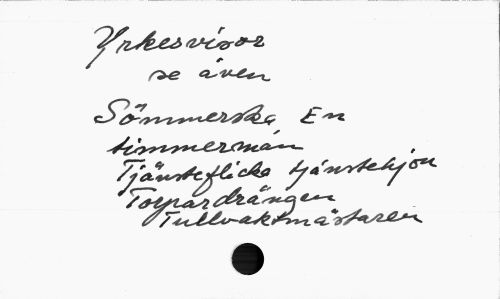 Yrkesvisor
se även
Sömmerska En
timmerman
Tjänsteflicka tjänstehjon
Torpardrängen
Tullvaktmästaren